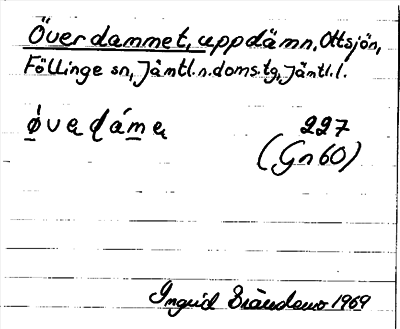 Överdammet, uppdämn. Ottsjön,
Föllinge sn, Jämtl. n. doms.tg, Jämtl. l.
227
(Gn 60)
Ingrid 1969